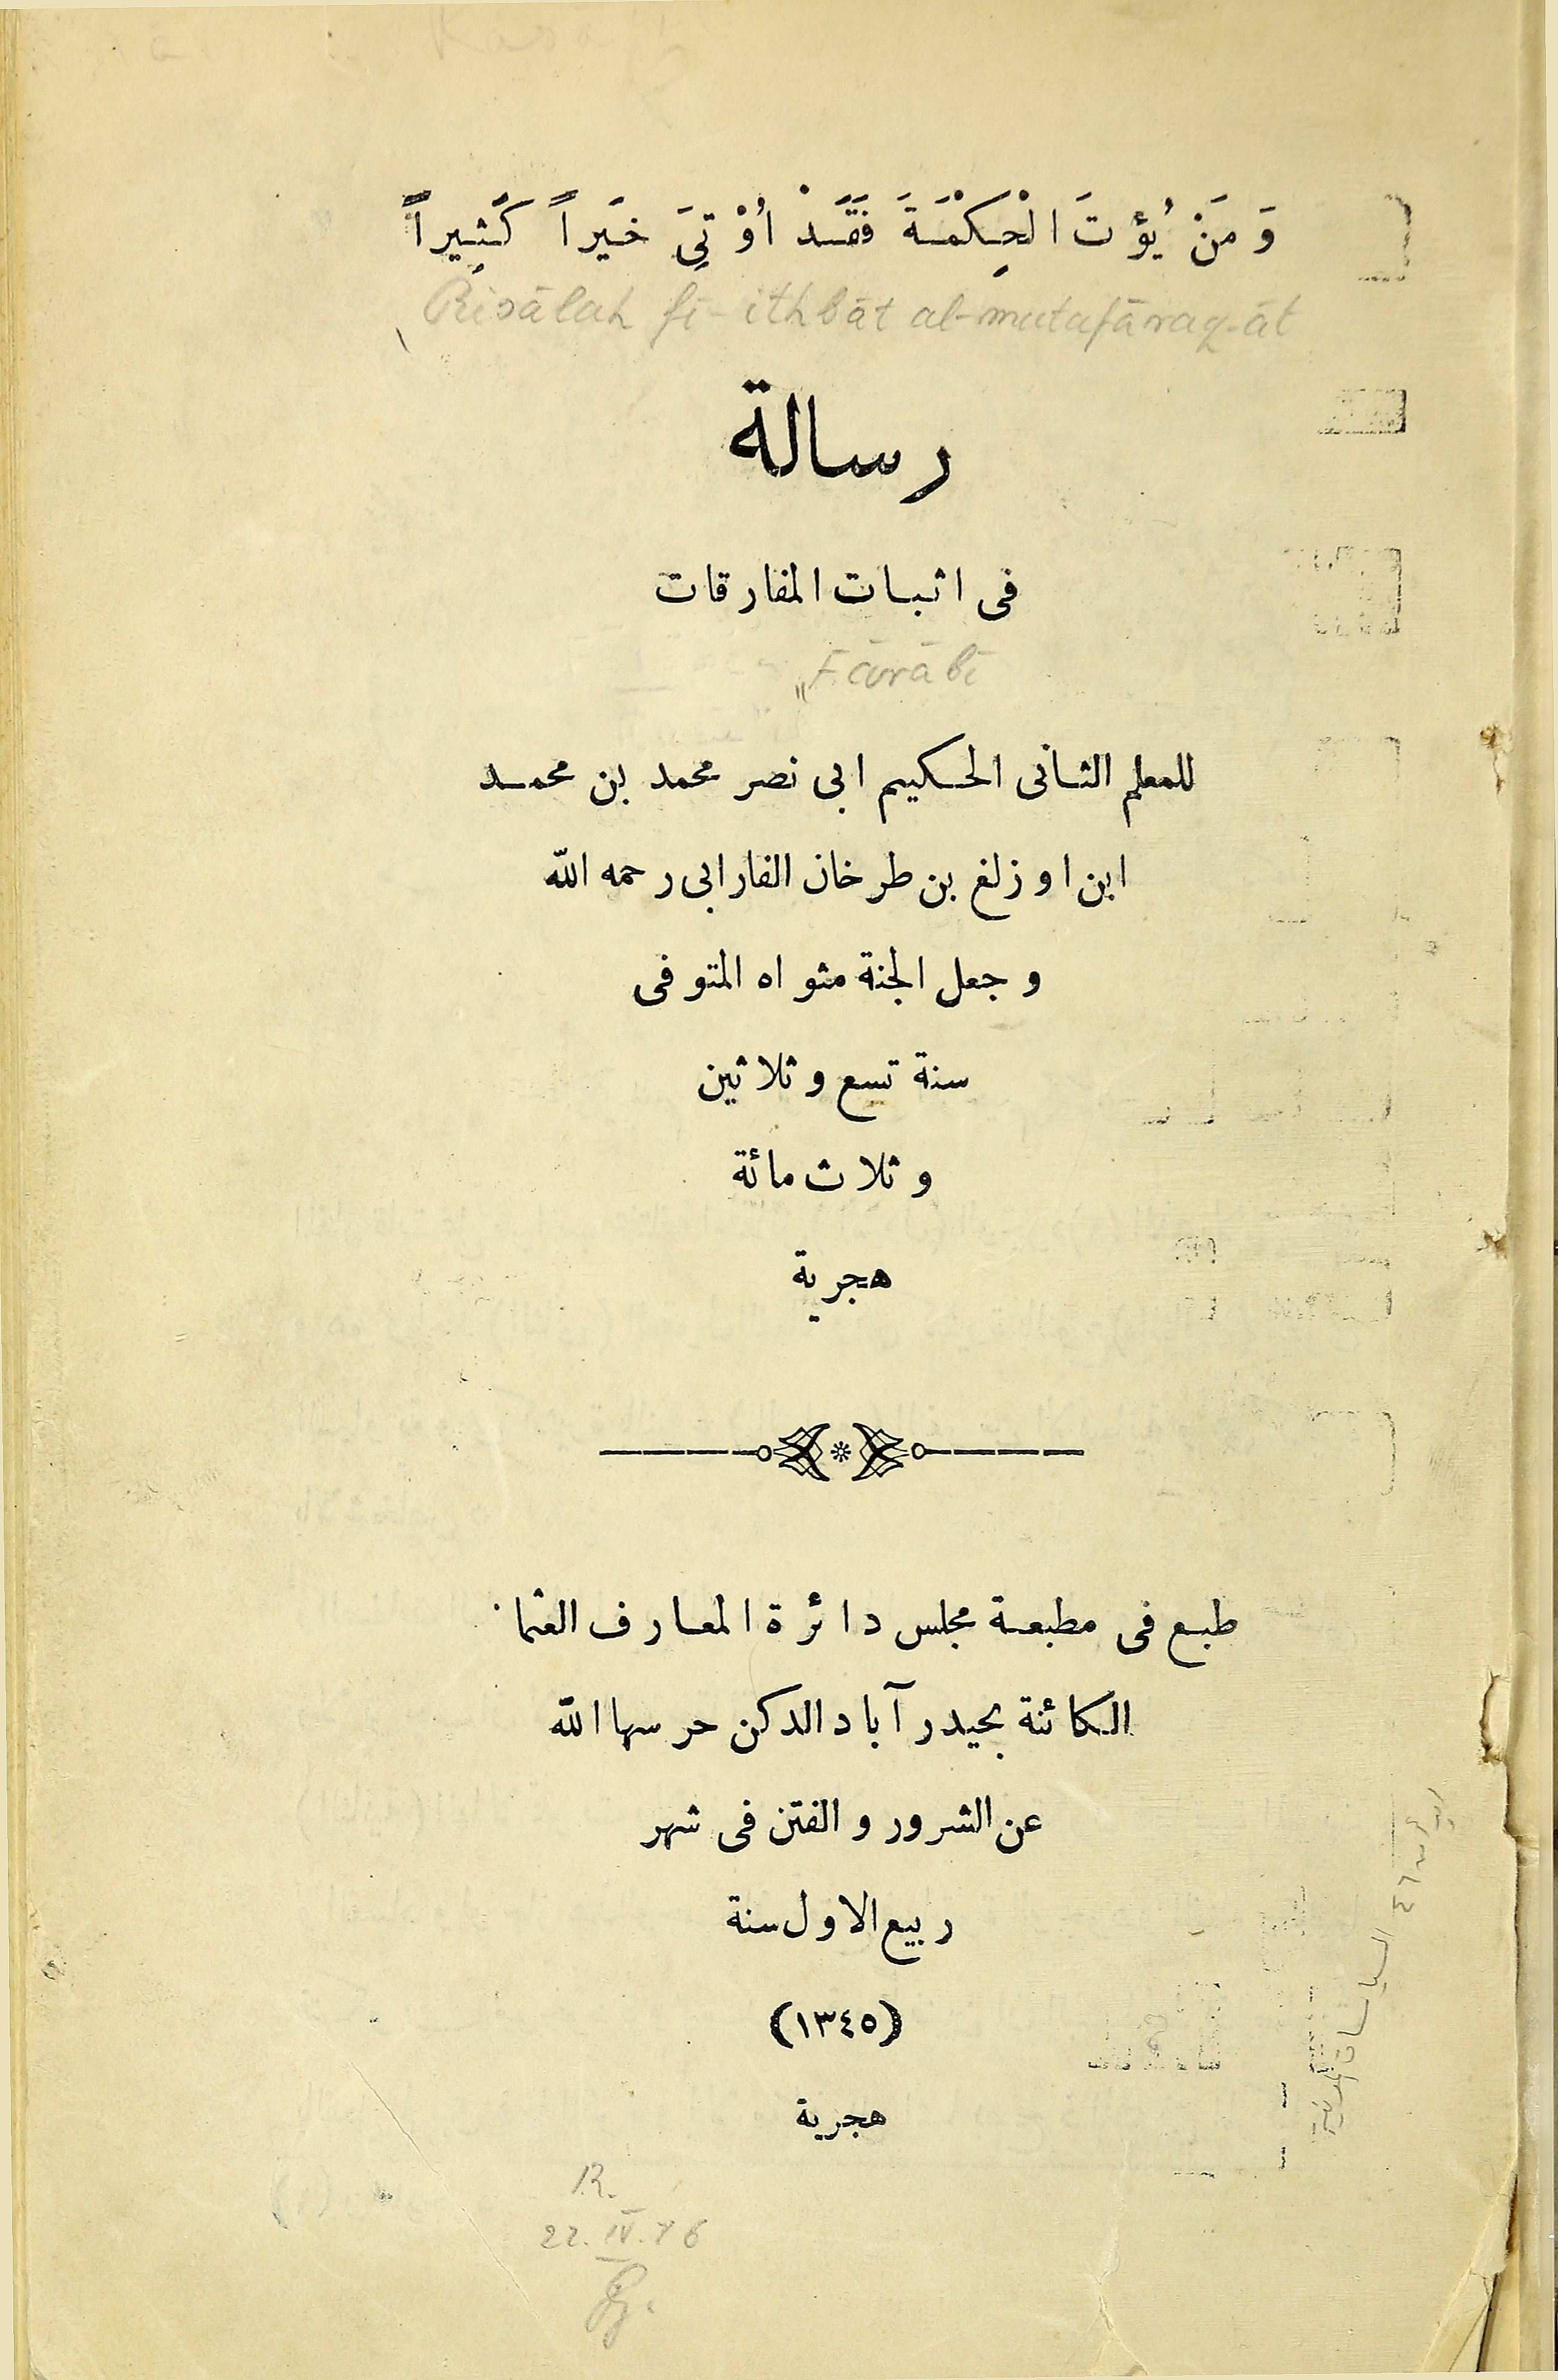 وَ مَنْ يُؤتَ الْحِكْمَةَ فَقَدْ اُوْتِىَ خَيراً كَثِيراً
Risālah fī-ithbāt al-mutafāraq-āt
رسالة
فى اثبات المفارقات
Fārābī
للمعلم الثانى الحكيم ابى نصر محمد بن محمد
ابن اوزلغ بن طرخان الفارابى رحمه الله
وجعل الجنة مثواه المتوفى
سنة تسع وثلاثين
وثلاث مائة
هجرية
طبع فى مطبعة مجلس دائرة المعارف العثما
الكائنة بحيدر آباد الدكن حرسها الله
عن الشرور والفتن فى شهر
ربيع الاول سنة
(١٣٤٥)
هجرية
R.
22. IV. 76
السياسات المدنية